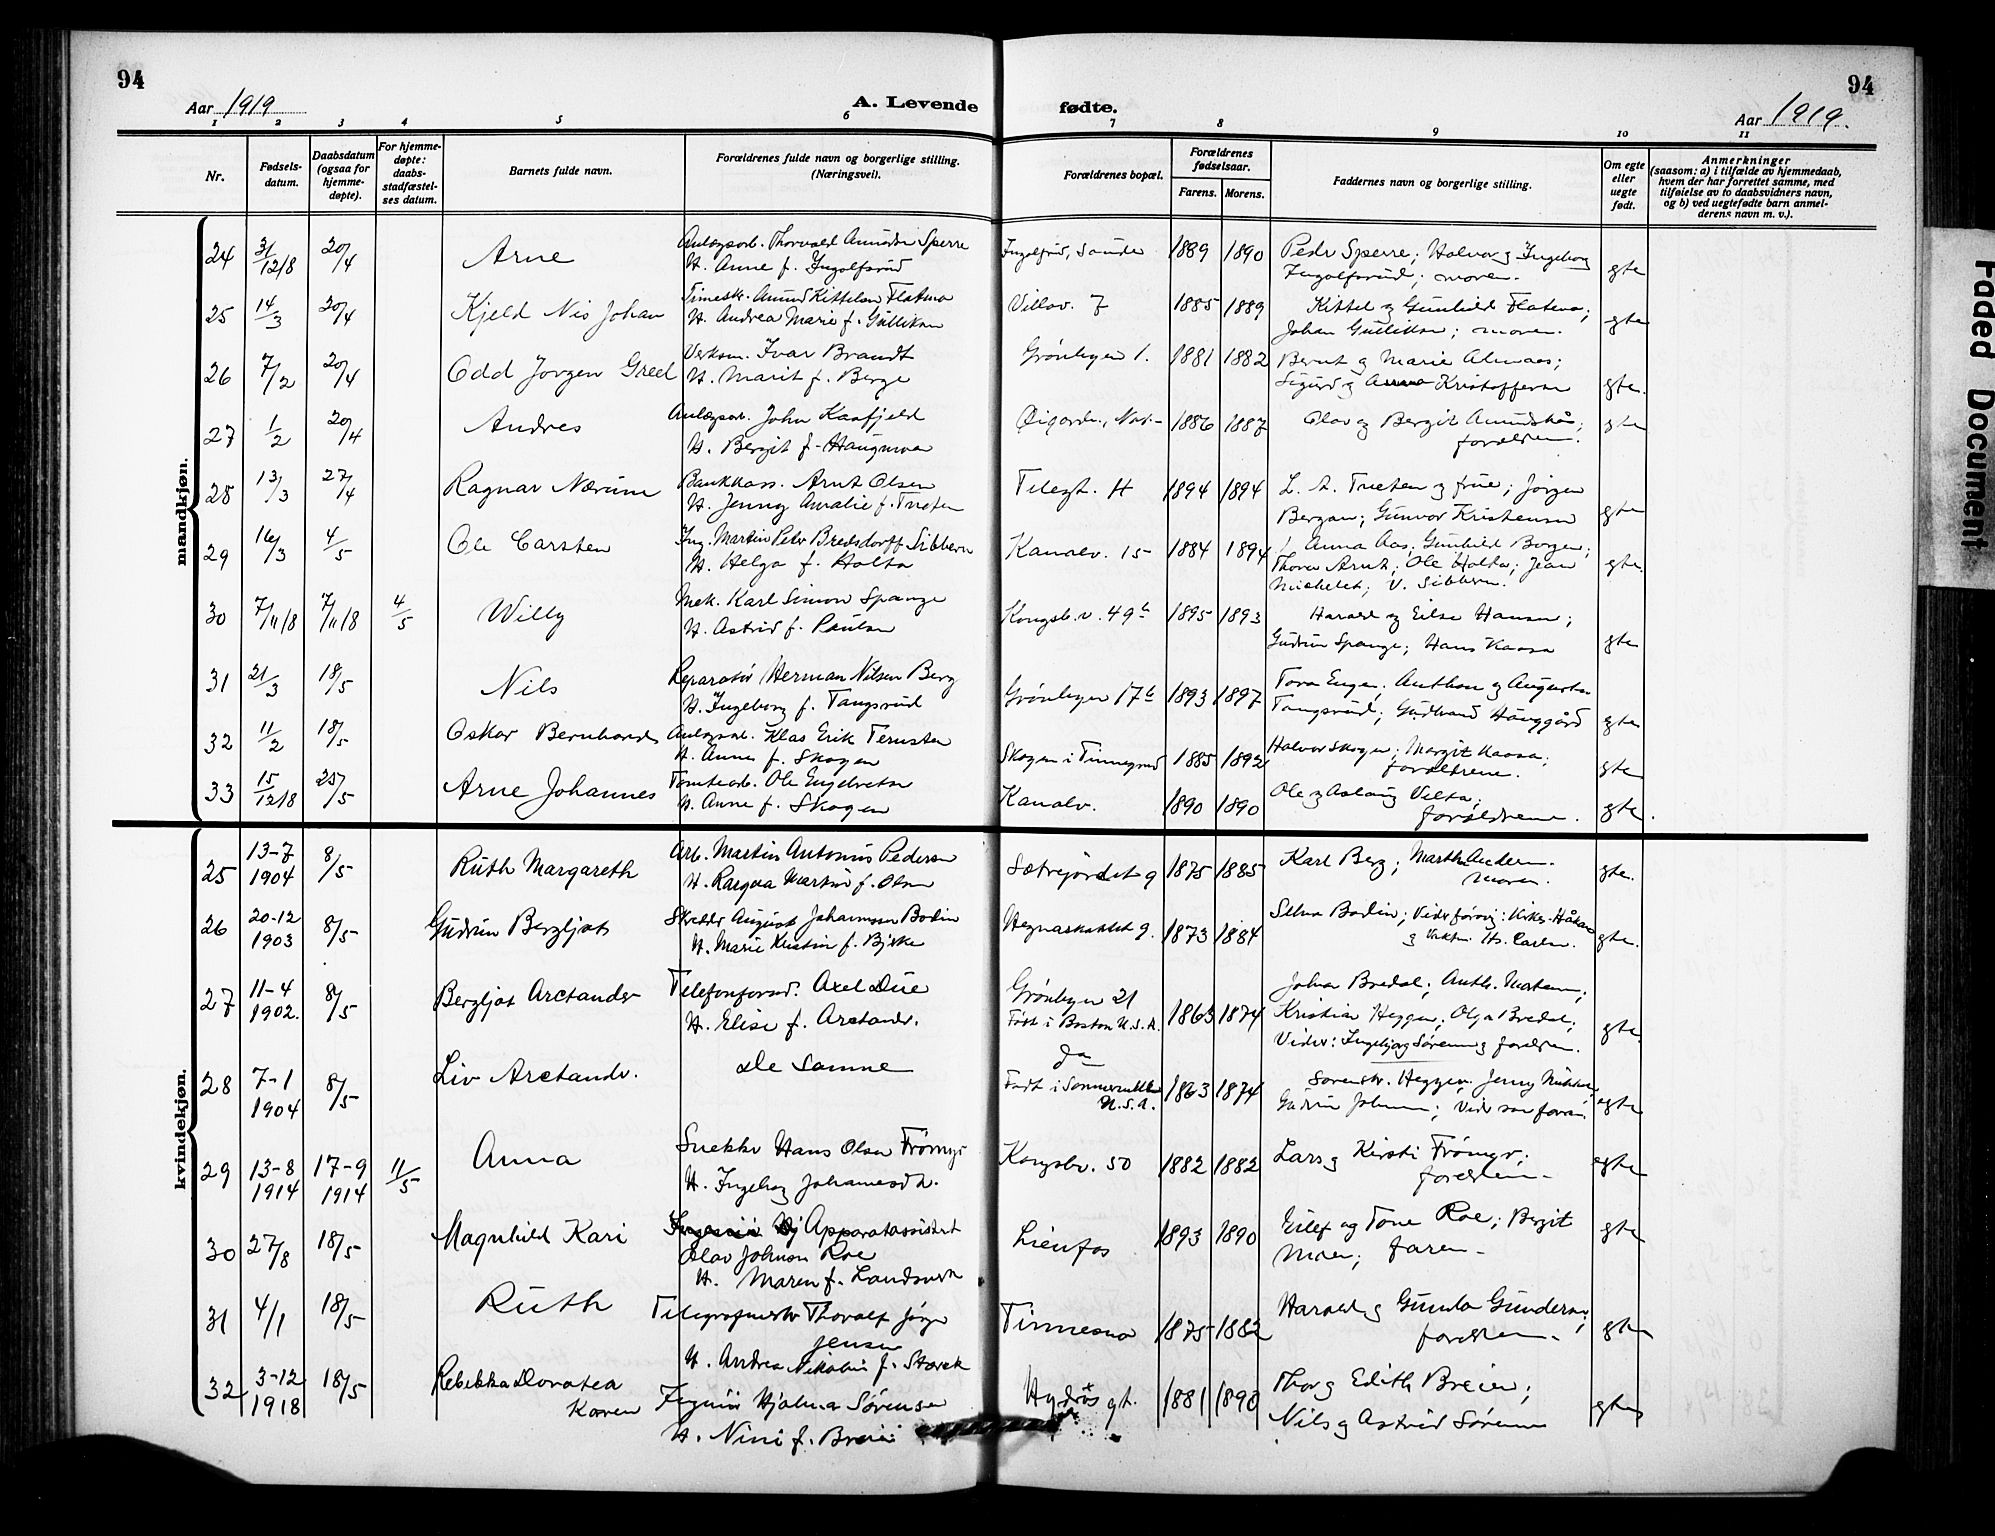 94
94
Aar 1919
A. Levende
fødte.
Aar 1919.
1 2 3 4 5 6 7 8 9 10 11
Nr.
Fødsels-
datum.
Daabsdatum
(ogsaa for
hjemme-
døpte).
For hjemme-
døpte:
daabs-
stadfæstel-
ses datum.
Barnets fulde navn.
Forældrenes fulde navn og borgerlige stilling.
(Næringsvei).
Forældrenes bopæl.
Forældrenes
fødselsaar.
Farens. Morens.
Faddernes navn og borgerlige stilling.
Om egte
eller
uegte
født.
Anmerkninger
(saasom: a) i tilfælde av hjemmedaab,
hvem der har forrettet samme, med
tilføielse av to daabsvidners navn,
og b) ved uegtefødte barn anmel-
derens navn m. v.).
mandkjøn.
24 31/12/8 20/4 Arne Anlægsarb. Thorvald Amundsen Sperre 1889 1890 Peder Sperre; Halvor og Ingeborg gte
H. Anne f. Ingolfsrud Ingolfsrud; moren.
25 14/3 20/4 Kjeld Nis Johan Amund Kittelsen Flatmo Villav. 7 1885 1889 Kittel og Gunhild Flatmo; gte
H. Andrea Marie f. Gulliksen Johan Gulliksen; moren.
26 7/2 20/4 Odd Jørgen Verksm. Ivar Brandt Grønbyen 1. 1881 1882 Bernt og Marie Almaas; gte.
H. Marit f. Berge Sigurd og Kristoffersen
27 1/2 20/4 Andres Anlægsarb. John Kaafjeld 1886 1887 Olav og Bergit gte
H. Bergit f. Haugmoen forældrene.
28 13/3 27/4 Ragnar Nærum Bankkass. Arnt Olsen Telegt. H 1894 1894 L. A. Tveten og frue; Jørgen gte
H. Jenny Amalie f. Tveten Bergan; Gunvor Kristensen
29 16/3 4/5 Ole Carsten Ing. Martin Peter Bredsdorff Sibbern Kanalv. 15 1884 1894 Anna Aas; Gunhild Borgen; gte.
H. Helga f. Holta Thora Arntz; Ole Holta; Jean
Michelet; V. Sibbern.
30 7/11/8 7/11/8 4/5 Willy Mek. Karl Simon Spange Kongsb.v. 49b 1895 1893 Harald og Else Hansen; gte
H. Astrid f. Paulsen Gudrun Spange; Hans Kaasa
31 21/3 18/5 Nils Reparatør Herman Nilsen Berg Grønbyen 17b 1893 1897 Tora Enger; Anthon og Augusta gte
H. Ingeborg f. Tangsrud Tangsrud; Gudbrand Hauggård
32 11/2 18/5 Oskar Bernhard Anlægsarb. Klas Erik Skogen i Tinnegrend 1885 1892 Halvor Skogen; Margit Kaasa; gte
H. Anne f. Skogen forældrene.
33 15/12/8 25/5 Arne Johannes Tomtearb. Ole Engebretsen Kanalv. 1890 1890 Ole og Aslaug Velta; gte.
H. Anne f. Skogen forældrene.
kvindekjøn.
25 13-7 1904 8/5 Ruth Margareth Arb. Martin Antonius Pedersen Sætrejordet 9 1875 1885 Karl Berg; Martha Andersen. gte.
H. Ragna Martine f. Olsen moren.
26 20-12 1903 8/5 Gudrun Bergljot Skredder August Johannessen Bodin 1873 1884 Selma Bodin; gte.
H. Marie Kristine f. Bjerke
27 11-4 1902. 8/5 Bergljot Arctander Axel Due Grønbyen 21 1863 1874 Johan Bredal; Anth. Mortensen; gte
H. Elise f. Arctander. Født i Boston U.S.A. Kristian Heggen; Olga Bredal;
Vidner: Ingebjørg Sørensen og forældrene.
28 7-1 1904 8/5 Liv Arctander. de Samme do 1863 1874 Sorenskr. Heggen; Jenny egte
Født i U.S.A. Gudrun Johnsen; Vidner som foran.
29 13-8 1914 17-9 1914 11/5 Anna Snekker Hans Olsen Kongsbv. 50 1882 1882 Lars og Kirsti egte
H. Ingeborg Johannesdtr. forældrene.
30 27/8 18/5 Magnhild Kari Apparatassistent Lienfos 1893 1890 Eilef og Tone Roe; Bergit gte
Olav Johnsen Roe Moen; faren.
H. Maren f. Landsverk
31 4/1 18/5 Ruth Telegrafmester Thoralf Jørgen Tinnesmo 1875 1882 Harald og Gunda Gundersen; gte
Jensen forældrene.
H. Andrea Nikoline f. Stærek
32 3-12 1918 18/5 Rebekka Doratea Karen Ingeniør Hjalmar Sørensen Hydros gt. 1881 1890 Thor og Edith Breien; gte
H. Nini f. Breien Nils og Astrid Sørensen
Faded Document